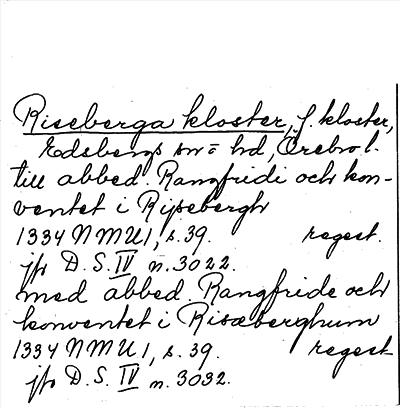 Riseberga kloster, f. kloster,
Edsbergs sn = hd, Örebro l.
till abbed. Rangfridi och kon-
ventet i Rijsebergh
1334 NMU 1, s. 39. regest.
jfr D. S. IV n. 3022.
med abbed. Rangfride och
konventet i Risæberghum
1334 NMU 1, s. 39. regest
jfr D. S. IV n. 3032.